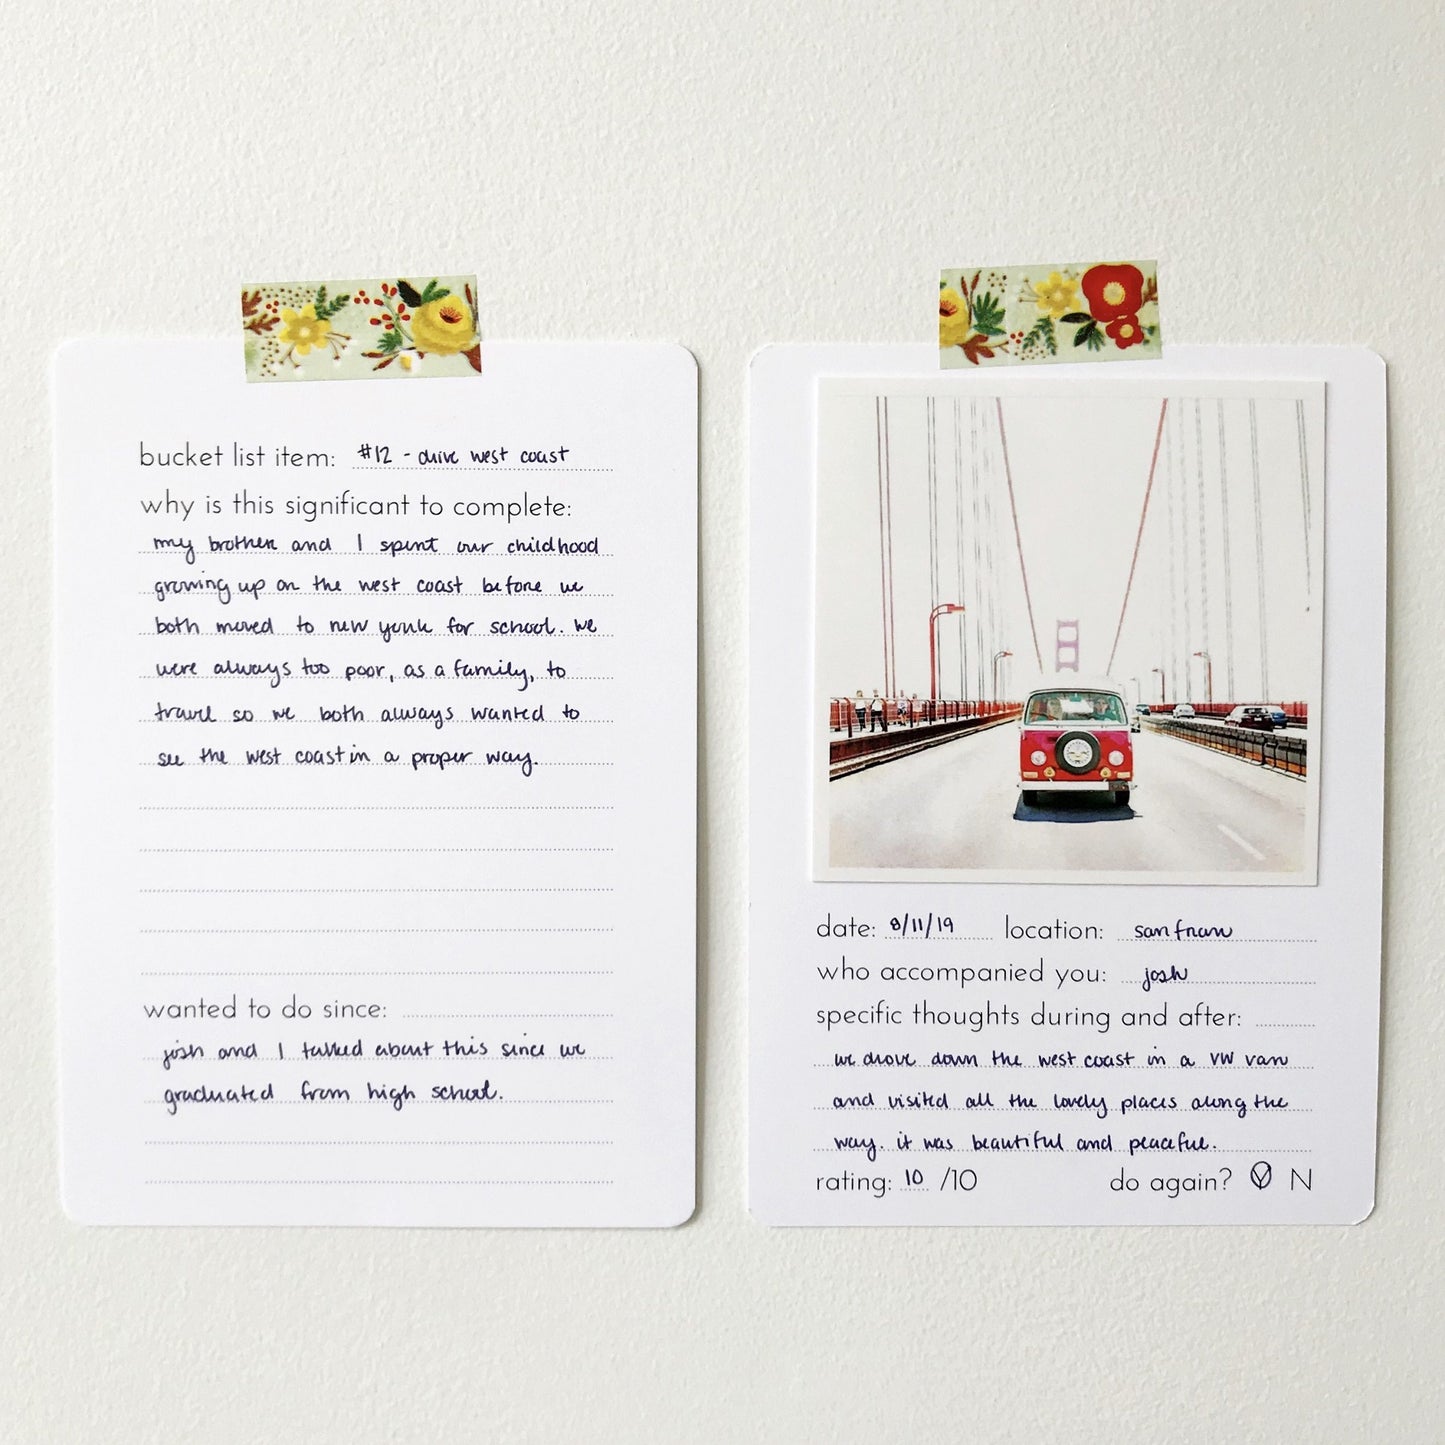 bucket list item: #12 - drive west coast
why is this significant to complete:
my brother and I spent our childhood
growing up on the west coast before we
both moved to new york for school. we
were always too poor, as a family, to
travel so we both always wanted to
see the west coast in a proper way.
wanted to do since:
josh and I talked about this since we
graduated from high school.
date: 8/11/19 location: san fran
who accompanied you: josh
specific thoughts during and after:
we drove down the west coast in a VW van
and visited all the lovely places along the
way. it was beautiful and peaceful.
rating: 10 /10 do again? Y N